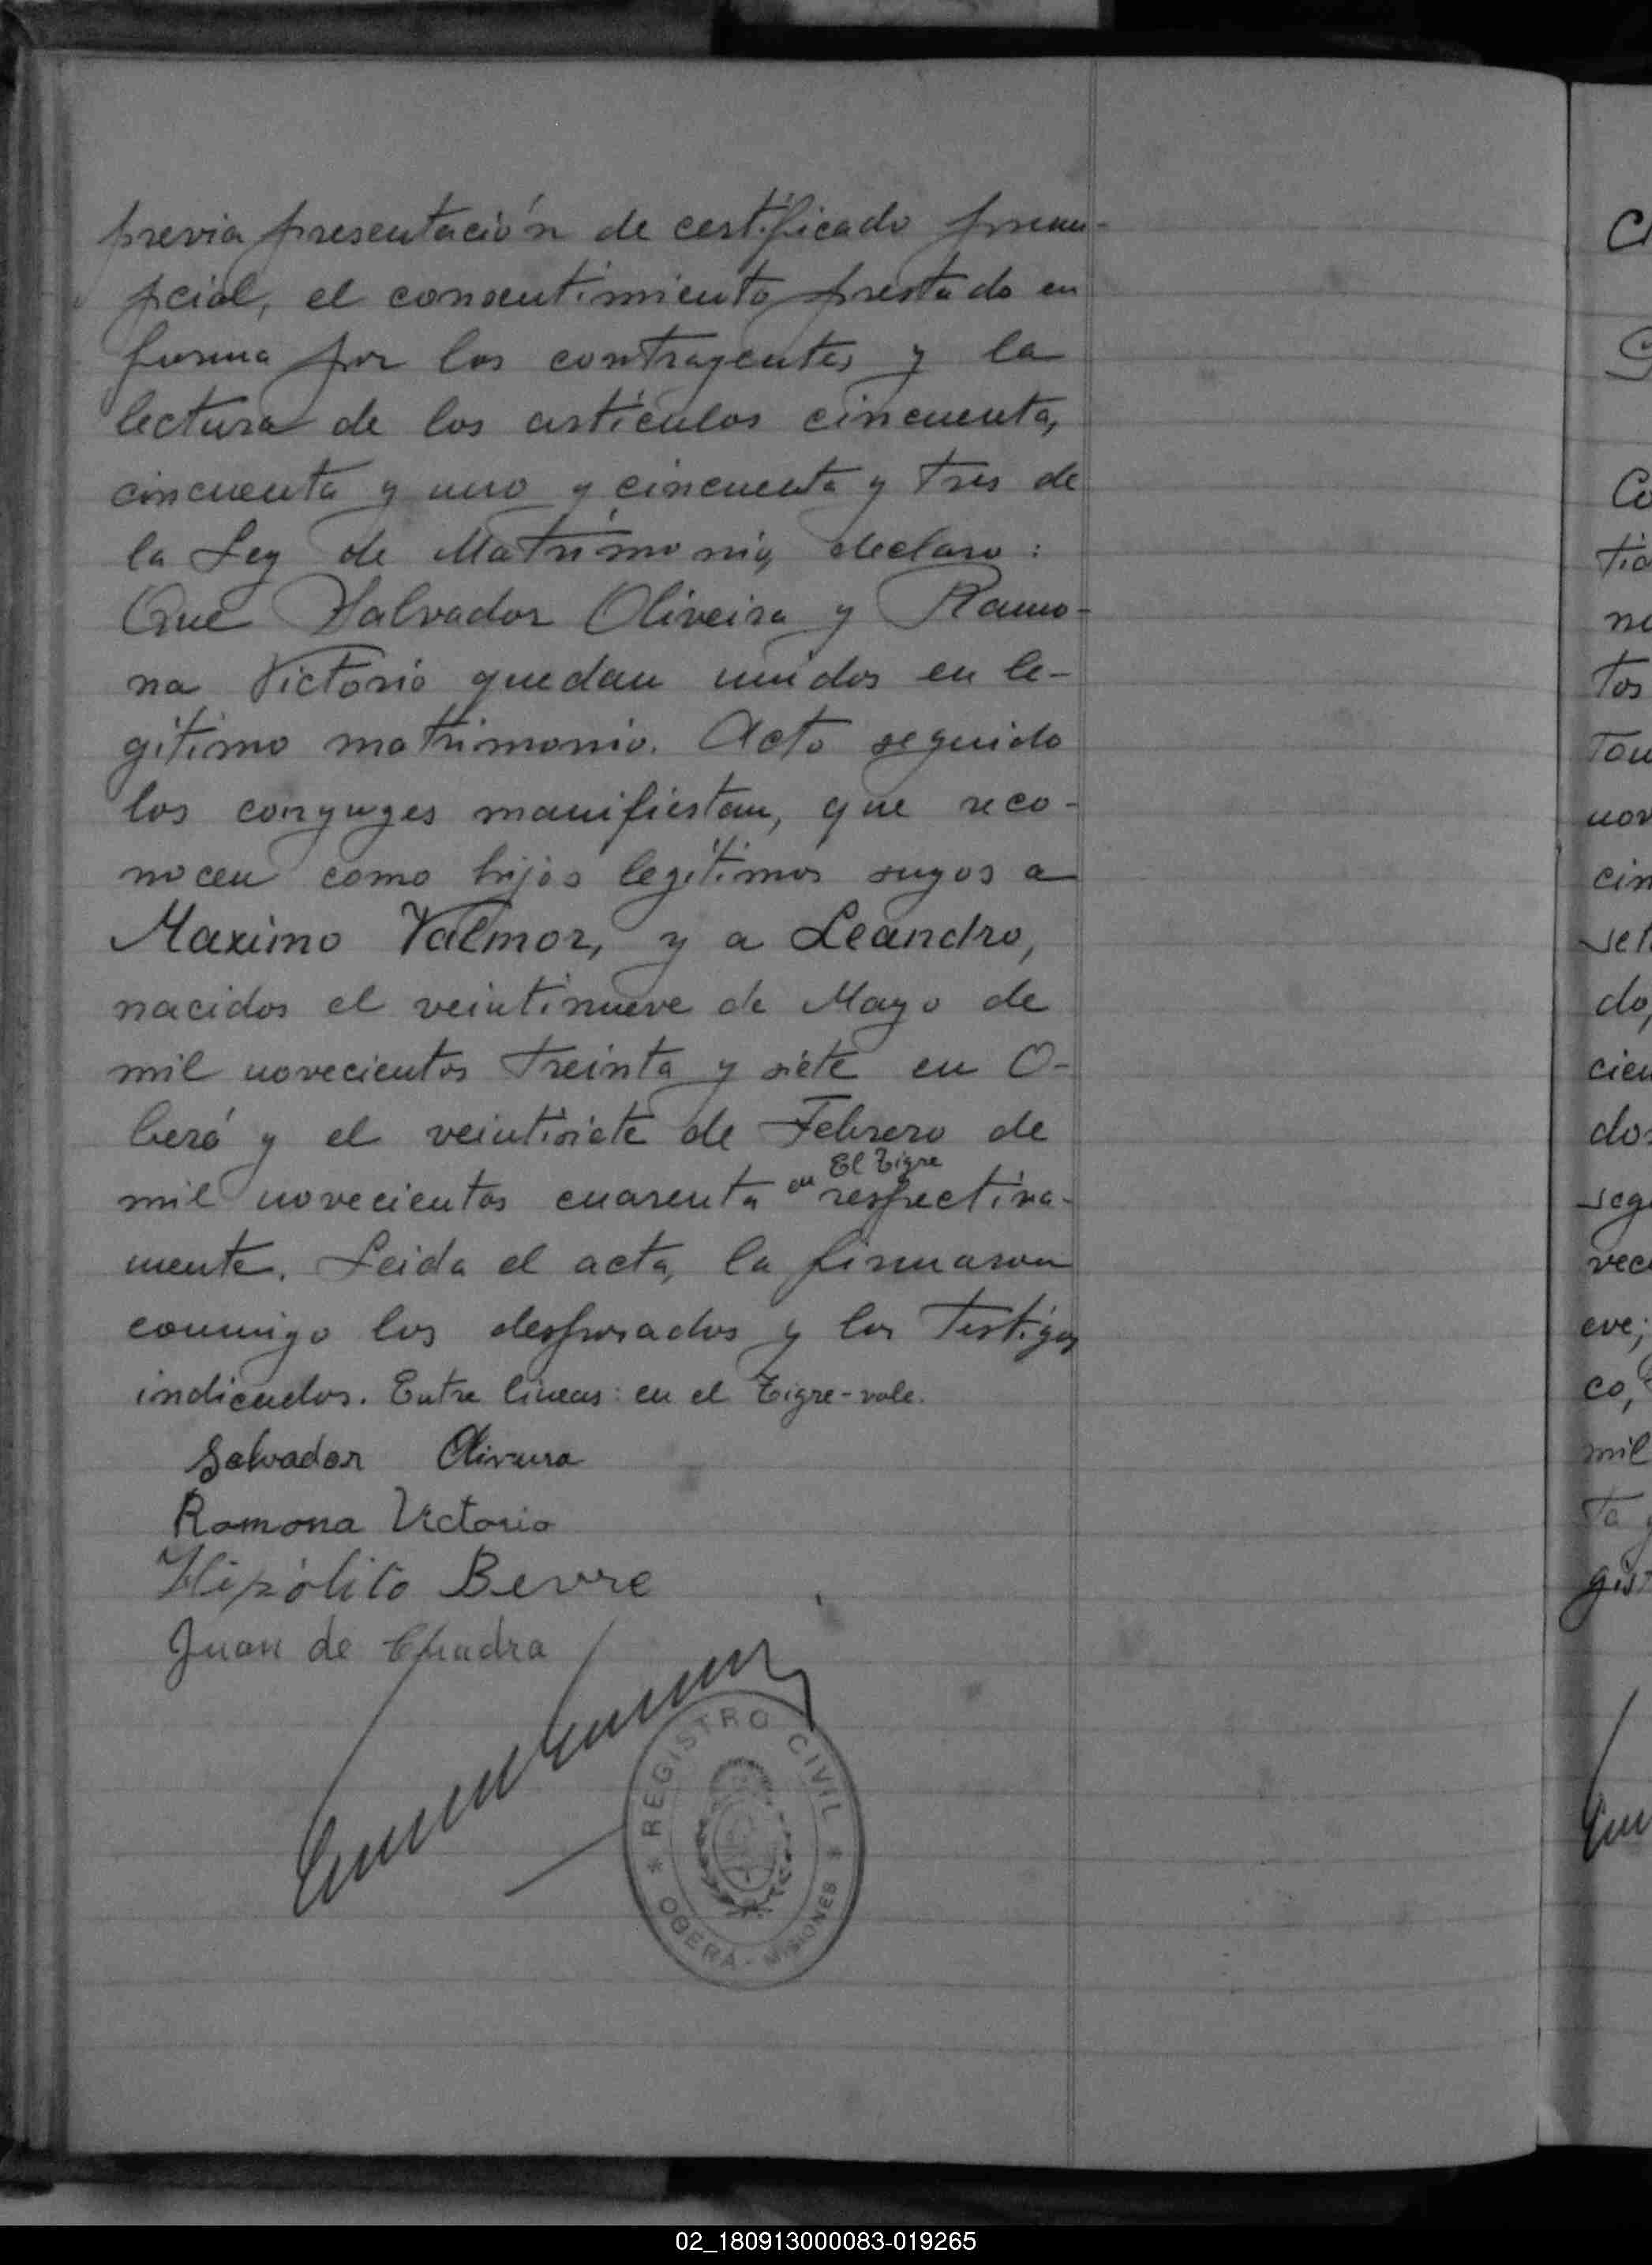 previa presentación de certificado prenu-
pcial, el consentimiento prestado en
forma por los contrayentes y la
lectura de los artículos cincuenta,
cincuenta y uno y cincuenta y tres de
la Ley de Matrimonio, declaro:
Que Salvador Oliveira y Ramo-
na Victorio quedan unidos en le-
gítimo matrimonio. Acto seguido
los conyuges manifiestan, que reco-
nocen como hijos legítimos suyos a
Maximo Valmor, y a Leandro,
nacidos el veintinueve de Mayo de
mil novecientos treinta y siete en O-
berá y el veintisiete de Febrero de
mil novecientos cuarenta en El Tigre respectiva-
mente. Leida el acta, la firmaron
conmigo los desposados y los testigos
indicados. Entre lineas: en el Tigre-vale.
Salvador Oliveira
Ramona Victorio
Hipólito Bevre
Juan de Cuadra
REGISTRO CIVIL
* OBERA - MISIONES *
C
Co
tic
tos
nov
cin
set
do,
cien
dos
seg
vec
eve;
co,
mil
ta y
gis
02_180913000083-019265